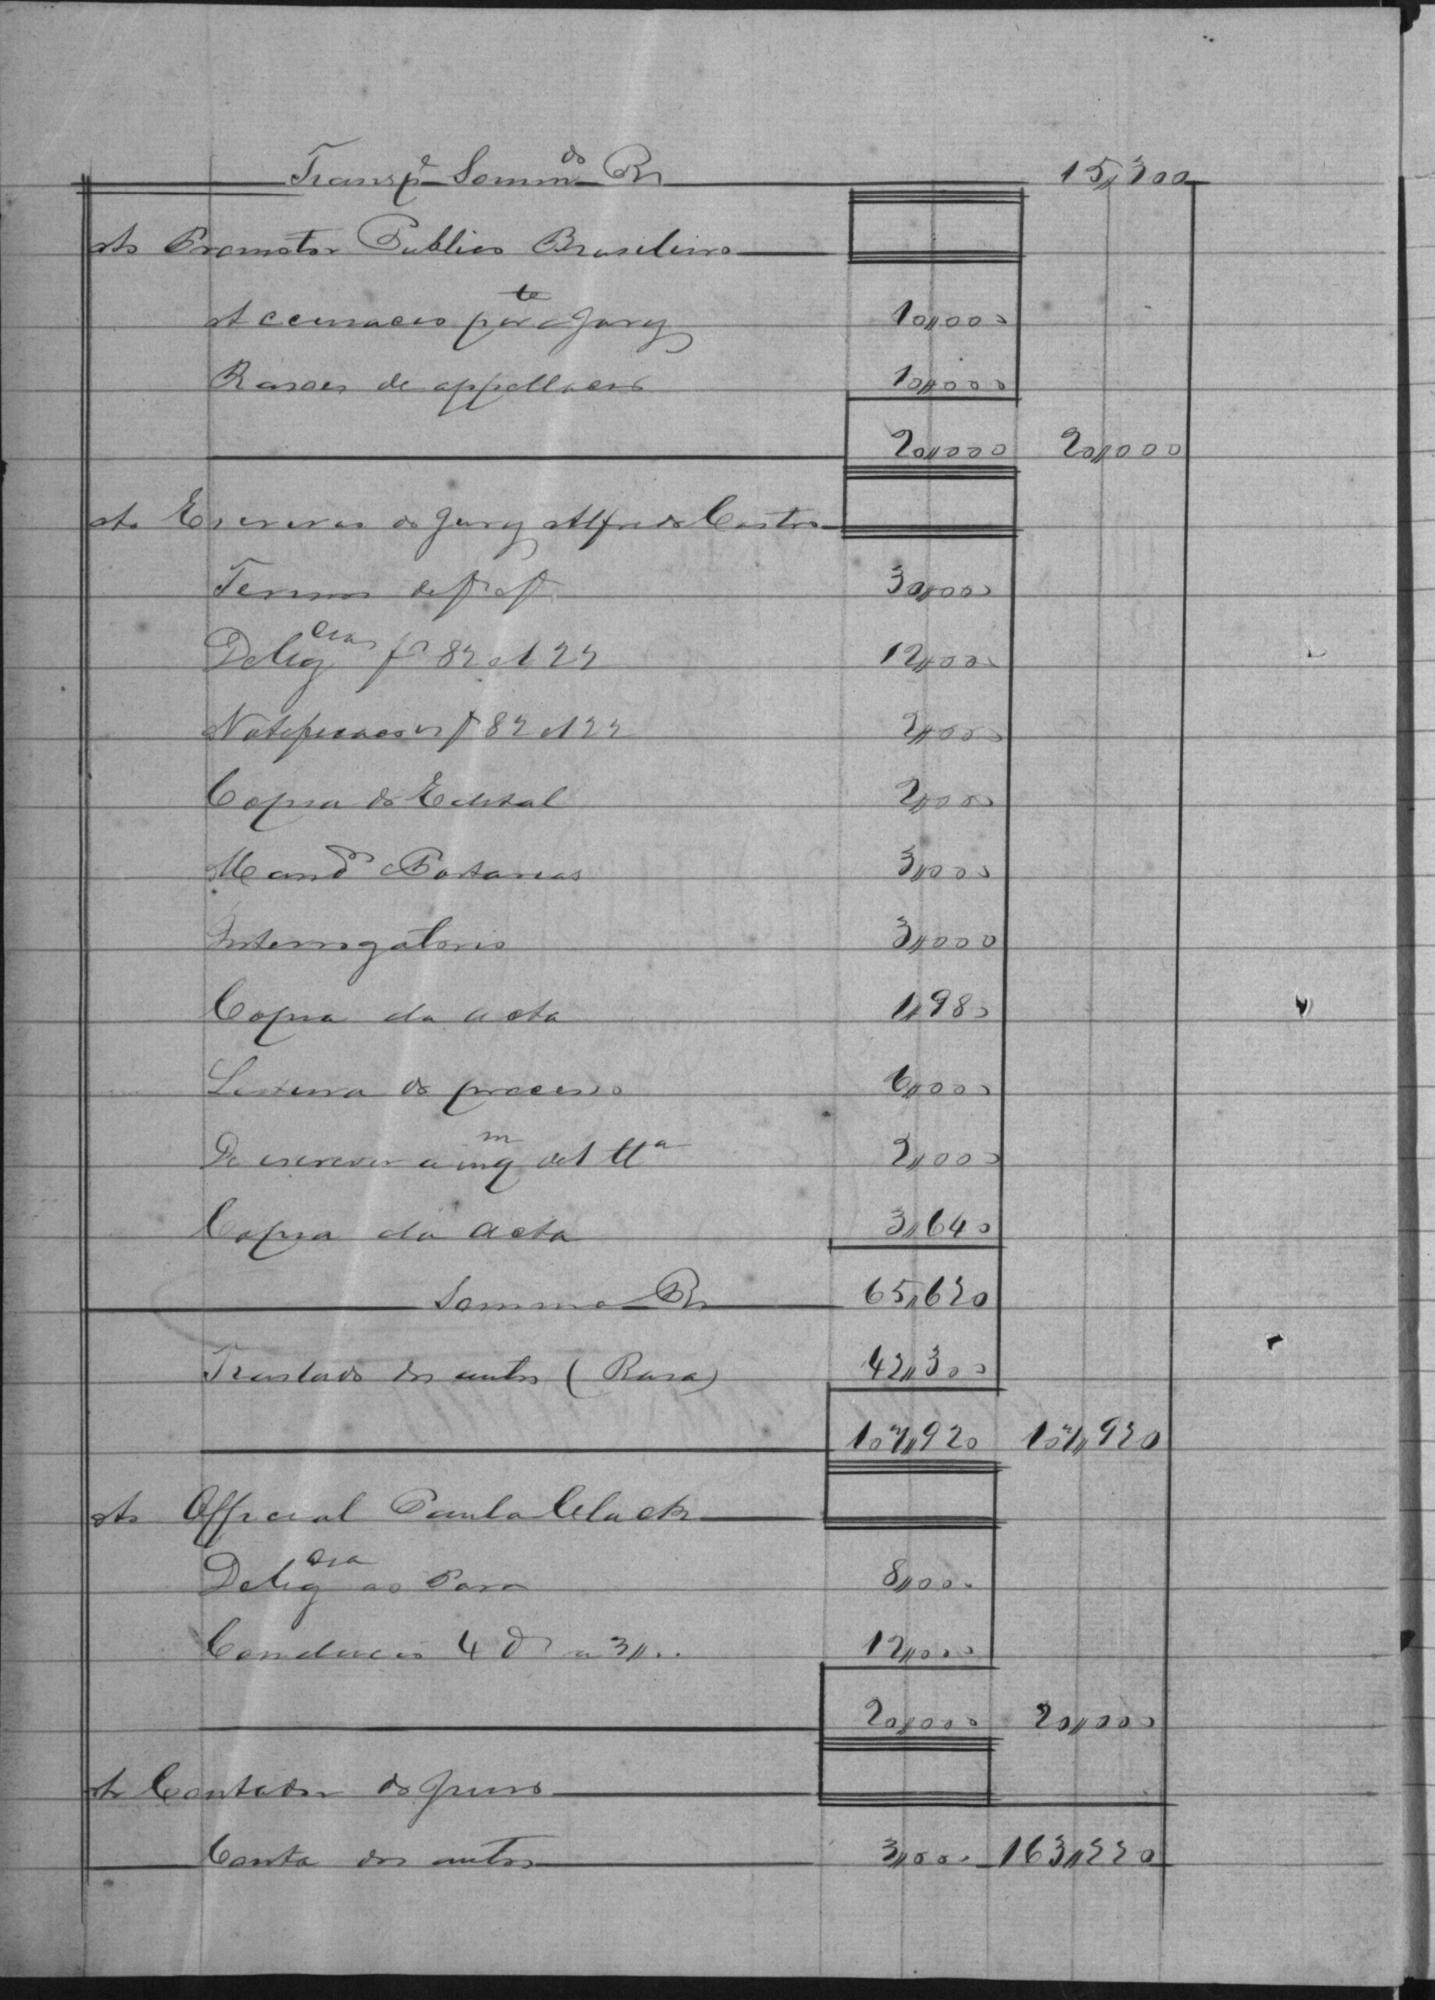 Transp.e Somm.do Rs 15,,300
Ao Promotor Publico Brasileiro
Accusação per.te o Jury 10,,000
Rasoes de appellação 10,,000
20,,000 20,,000
Ao Escrivão do Jury Alfredo Castro
Termos de f a f 30,,000
Delig.cias f 82 e 122 12,,000
Notificações f 82 e 122 2,,000
Copia do Edital 2,,000
Mand.o e Portarias 3,,000
Interrogatorio 3,,000
Copia da acta 1,,980
Leitura do processo 6,,000
De escrever a inq.m de 1 tt.a 2,,000
Copia da acta 3,,640
Somma Rs 65,,620
Traslado dos autos (Rasa) 42,,300
107,,920 107,,920
Ao Official Paula Clack
Delig.cia ao Para 8,,000
Condução 4 a 3,,.. 12,,000
20,,000 20,,000
Ao Contador do Juiso
Conta dos autos 3,,000 163,,220